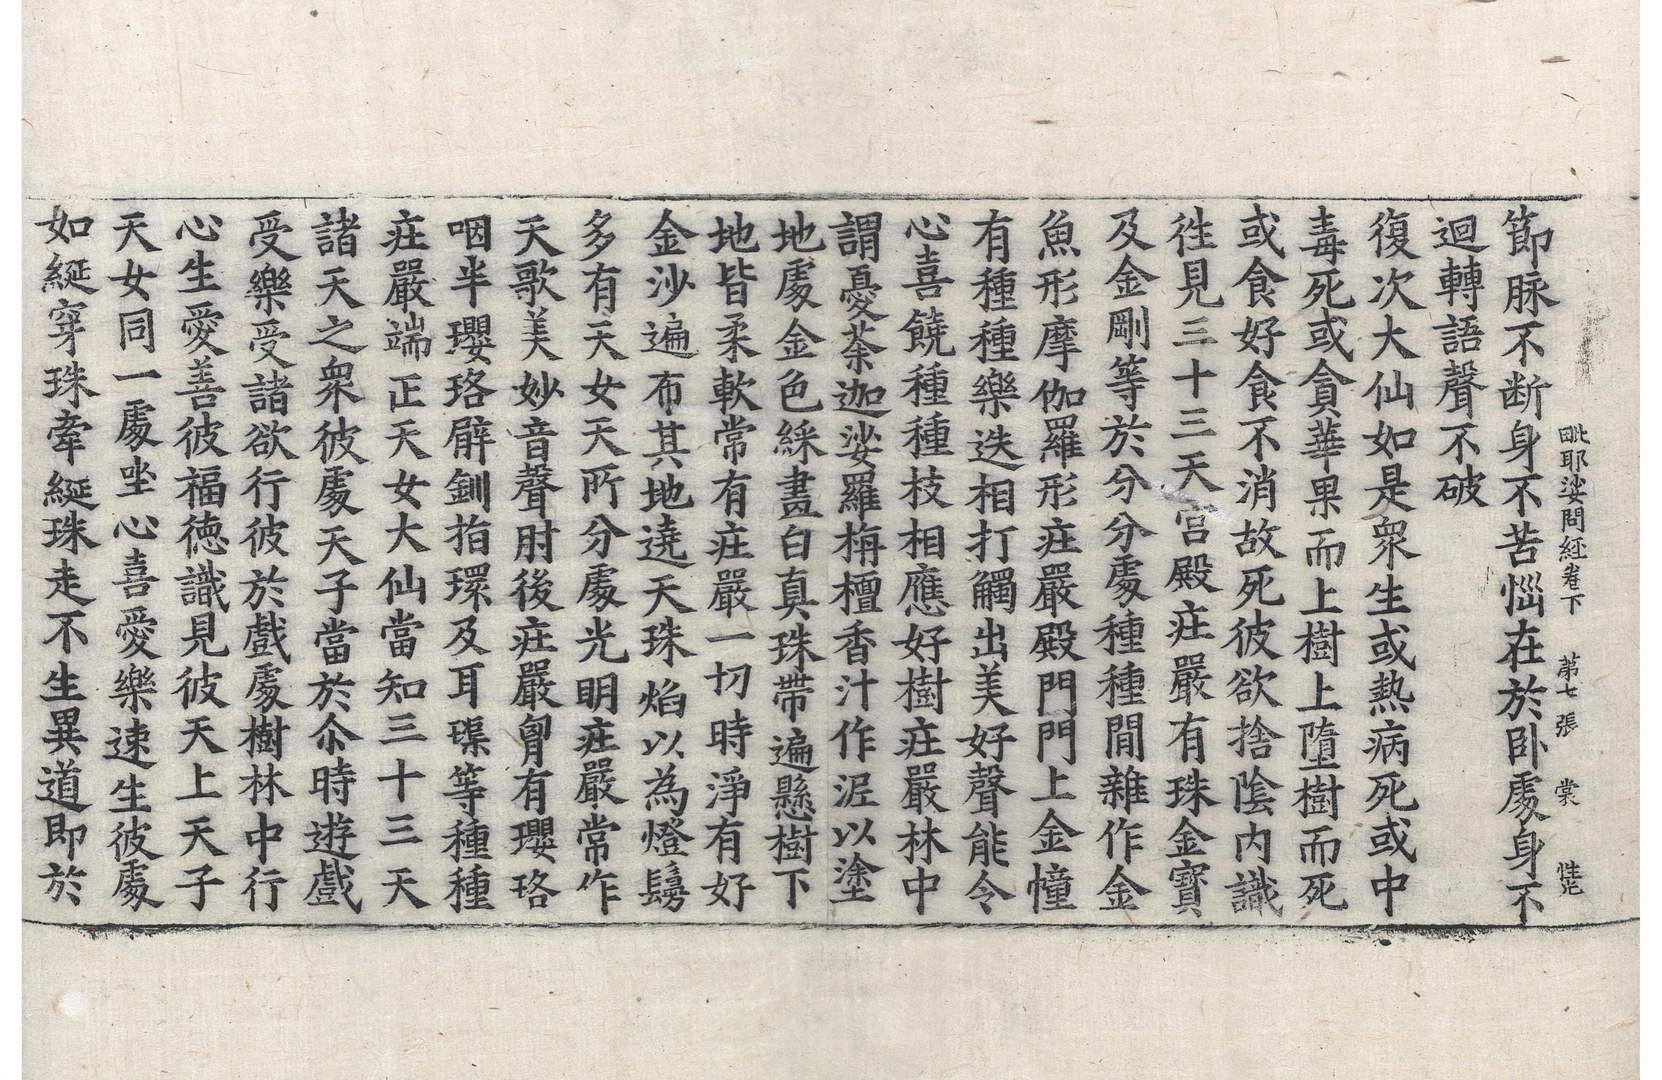 毗耶娑問經卷下　第七張　裳　惟
節脉不断身不苦惱在於卧處身不
迴轉語聲不破
復次大仙如是衆生或熱病死或中
毒死或貪華果而上樹上墮樹而死
或食好食不消故死彼欲捨陰内識
徃見三十三天宫殿莊嚴有珠金寶
及金剛等於分分處種種間雜作金
魚形摩伽羅形莊嚴殿門門上金幢
有種種樂迭相打觸出美好聲能令
心喜饒種種枝相應好樹莊嚴林中
謂憂荼迦娑羅栴檀香汁作泥以塗
地處金色綵畫白真珠帶遍懸樹下
地皆柔軟常有莊嚴一切時淨有好
金沙遍布其地遶天珠焰以為燈鬘
多有天女天所分處光明莊嚴常作
天歌美妙音聲肘後莊嚴胷有瓔珞
咽半瓔珞臂釧指環及耳璖等種種
莊嚴端正天女大仙當知三十三天
諸天之衆彼處天子當於尒時遊戲
受樂受諸欲行彼於戲處樹林中行
心生愛善彼福德識見彼天上天子
天女同一處坐心喜愛樂速生彼處
如綖穿珠牽綖珠走不生異道即於